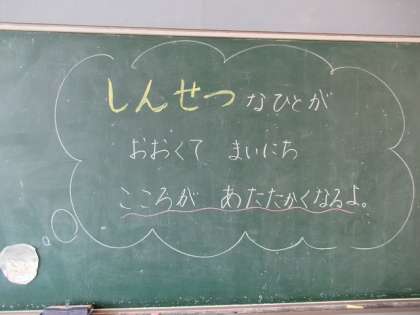 しんせつなひとが
おおくて まいにち
こころが あたたかくなるよ。